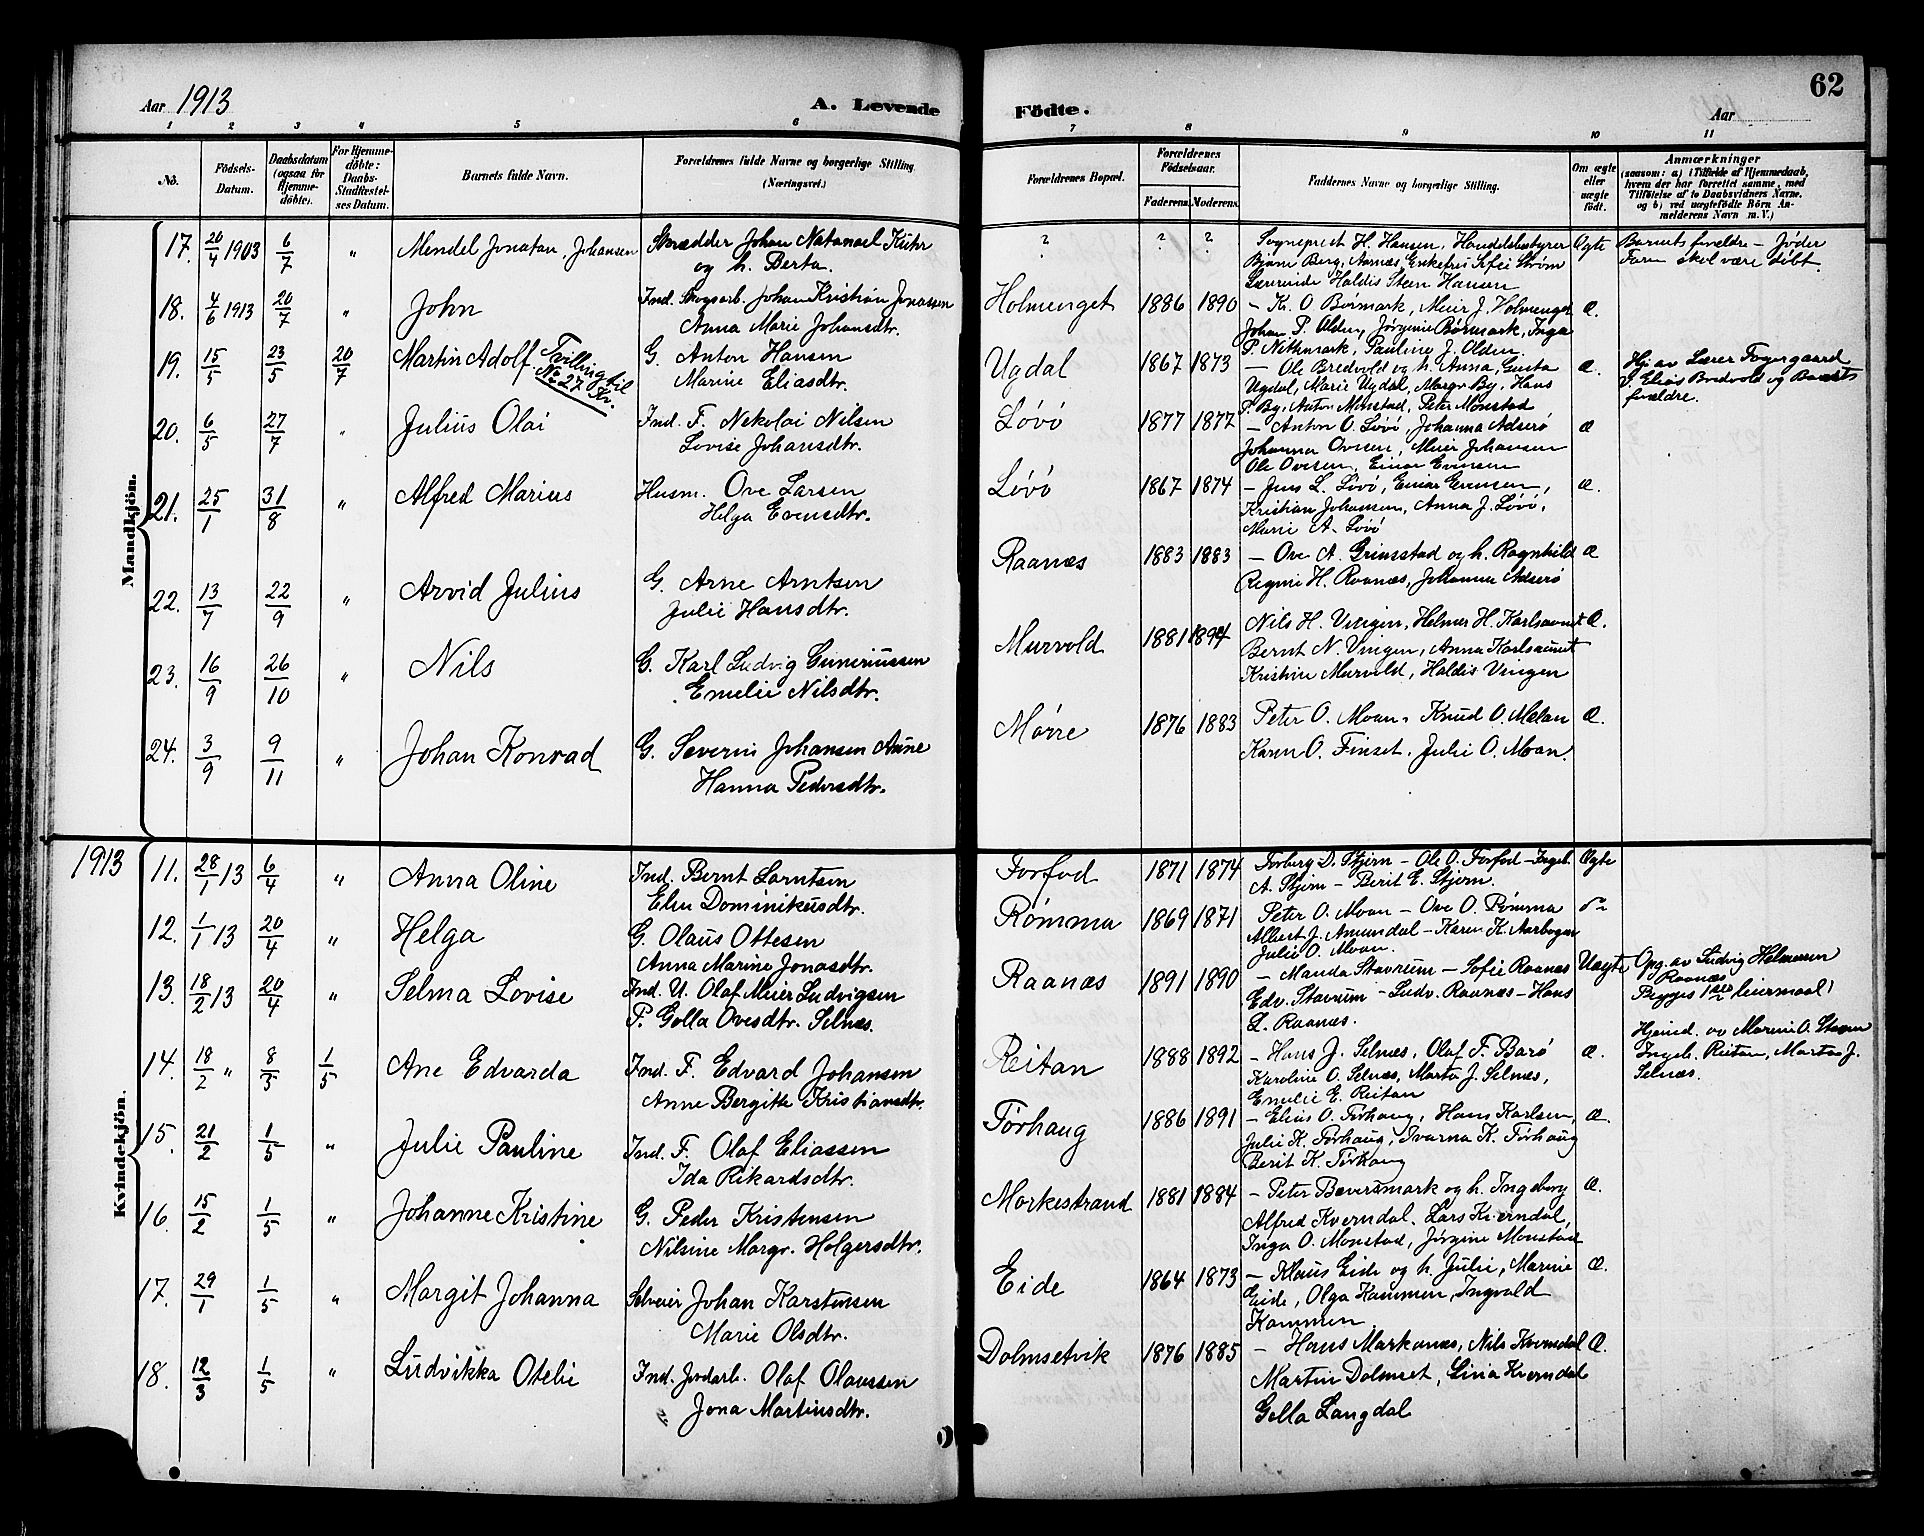 Aar 1913
A. Levende
Födte.
Aar
62
1 2 3 4 5 6 7 8 9 10 11
No.
Födsels-
Datum.
Daabsdatum
(ogsaa for
Hjemme-
döbte).
For Hjemme-
döbte:
Daabs-
Stadfæstel-
ses Datum.
Barnets fulde Navn.
Forældrenes fulde Navne og borgerlige Stilling.
(Næringsvei.)
Forældrenes Bopæl.
Forældrenes
Födselsaar.
Faderens. Moderens.
Faddernes Navne og borgerlige Stilling.
Om ægte
eller
uægte
födt.
Anmærkninger
(saasom: a) i Tilfælde af Hjemmedaab,
hvem der har forrettet samme, med
Tilföielse af to Daabsvidners Navne,
og b) ved uægtefödte Börn An-
melderens Navn m. V.)
Mandkjön.
17. 20/4 1903 6/7 " Mendel Jonatan Johansen
Skrædder Johan Natanael Kühr
og h. Berta.
? ? ?
Sogneprest H. Hansen, Handelsbestyrer
Bjarne Berg, Aarnæs, Enkefru Sofie Strøm
Lærerinde Haldis Steen Hansen
Ægte
Barnets forældre – Jøder
Faren skal være døbt.
18. 4/6 1913 20/7 " John
Ind. Skogsarb. Johan Kristian Jonassen
Anna Marie Johansdtr.
Holmenget 1886 1890
– Kr. O. Børmark, Meier J. Holmenget
Johan P. Olden, Jørgine Børmark, Inga
P. Nithmark, Pauline J. Olden.
Æ.
19. 15/5 23/5 20/7 Martin Adolf Tvilling til
No 27 Kv.
G. Anton Hansen
Marine Eliasdtr.
Ugdal 1867 1873
– Ole Bredvold og h. Anna, Gusta
Ugdal, Marie Ugdal, Margr. By, Hans
P. By, Anton Monstad, Peter Monstad
Æ.
Hj. av Lærer Fagergaard
V. Elias Bredvold og Barnets
forældre.
20. 6/5 27/7 " Julius Olai
Ind. F. Nekolai Nilsen
Lovise Johansdtr.
Løvø 1877 1877
– Anton O. Løvø, Johanna Adserø
Johanna Ovesen, Meier Johansen
Ole Ovesen, Einar Evensen
Æ
21. 25/1 31/8 " Alfred Marius
Husm. Ove Larsen
Helga Evensdtr.
Løvø 1867 1874
– Jens L. Løvø, Einar Evensen,
Kristian Johansen, Anna J. Løvø,
Marie A. Løvø
Æ.
22. 13/7 22/9 " Arvid Julius
G. Arne Arntsen
Julie Hansdtr.
Raanæs 1883 1883
– Ove A. Grinsstad og h. Ragnhild
Regine H. Raanæs, Johanna Adserø
Æ
23. 16/9 26/10 " Nils
G. Karl Ludvig Guneriussen
Emelie Nilsdtr.
Murvold 1881 1894
Nils H. Vingen, Helmer H. Karlsaunet
Bernt N. Vingen, Anna Karlsaunet
Kristine Murvold, Haldis Vingen
Æ.
24. 3/9 9/11 " Johan Konrad
G. Severin Johansen Aune
Hanna Pedersdtr.
Mørre 1876 1883
Peter O. Moan, Knud O. Melan
Karen O. Finset, Julie O. Moan.
Æ.
Kvindekjön.
1913
11. 28/1 13 6/4 " Anna Oline
Ind. Bernt Larntsen
Elen Dominikusdtr.
Forfod 1871 1874
Torberg D. Stjern – Ole O. Forfod – Ingeb.
A. Stjern – Berit E. Stjern.
Ægte
12. 1/1 13 20/4 " Helga
G. Olaus Ottesen
Anna Marine Jonasdtr.
Rømma 1869 1871
Peter O. Moan – Ove O. Rømma
Albert J. Amundal – Karen K. Aarbogen
Julie O. Moan.
13. 18/2 13 20/4 " Selma Lovise
Ind. U. Olaf Meier Ludvigsen
P. Golla Ovesdtr. Selnæs.
Raanæs 1891 1890
– Manda Stavrum – Sofie Raanæs
Edv. Stavrum – Ludv. Raanæs – Hans
L. Raanæs.
Uægte
Opg. av Ludvig Helmersen
Raanæs
Begges 1ste leiermaal)
14. 18/2 " 8/3 1/5 Ane Edvarda
Ind. F. Edvard Johansen
Anne Bergitte Kristiansdtr.
Reitan 1888 1892
– Hans J. Selnæs, Olaf F. Barø
Karoline O. Selnæs, Marta J. Selnæs,
Emelie E. Reitan
Æ.
Hjemd. av Marine O.
Ingeb. Reitan, Marta J.
Selnæs.
15. 21/2 1/5 " Julie Pauline
Ind. F. Olaf Eliassen
Ida Rikardsdtr.
Tørhaug 1886 1891
– Elias O. Tørhaug, Hans Karlsen,
Julie K. Tørhaug, Ivarna K. Tørhaug
Berit K. Tørhaug
Æ.
16. 15/2 1/5 " Johanne Kristine
G. Peder Kristensen
Nilsine Margr. Holgersdtr.
Morkestrand 1881 1884
– Peter Bæversmark og h. Ingeborg
Alfred Kverndal, Lars Kverndal,
Inga O. Monstad, Jørgine Monstad
Æ.
17. 29/1 1/5 " Margit Johanna
Selveier Johan Karstensen
Marie Olsdtr.
Eide 1864 1873
– Klaus Eide og h. Julie, Marine
Eide, Olga Kammen, Ingvald
Kammen.
Æ.
18. 12/3 1/5 " Ludvikka Otelie
Ind. Jordarb. Olaf Olaussen
Jona Martinsdtr.
Dolmsetvik 1876 1885
– Hans Markanæs, Nils Kverndal
Martin Dolmset, Lina Kverndal
Golla Langdal
Æ.